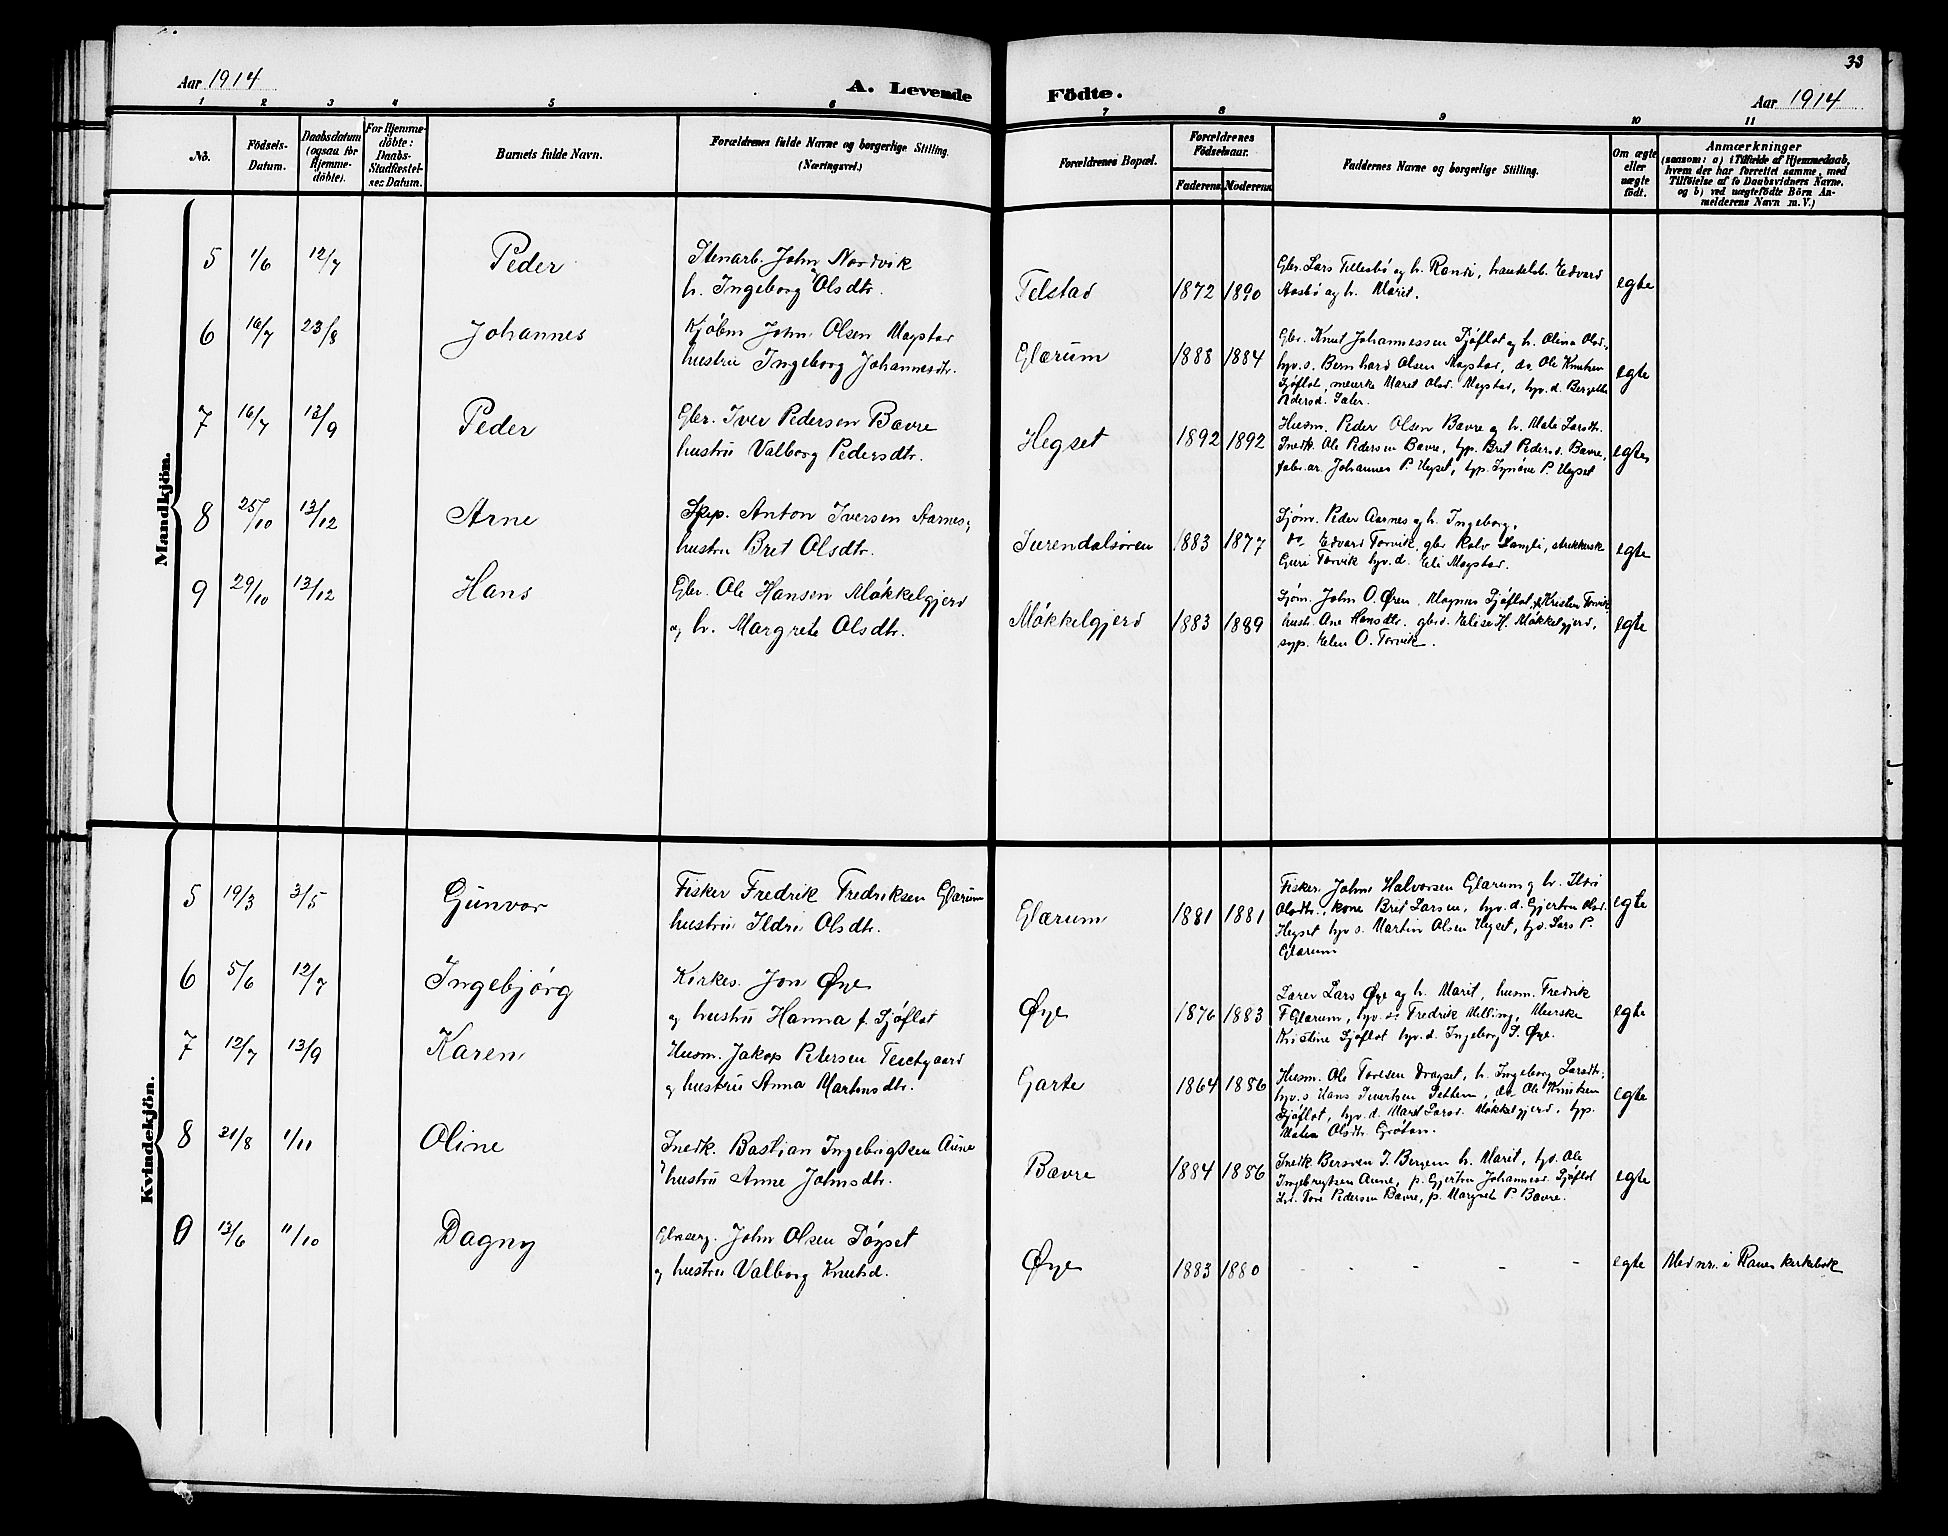 33
Aar 1914
A. Levende Födte.
Aar 1914
1 2 3 4 5 6 7 8 9 10 11
No.
Födsels-Datum.
Daabsdatum (ogsaa for Hjemme-döbte).
For Hjemme-döbte: Daabs-Stadfæstel-ses Datum.
Barnets fulde Navn.
Forældrenes fulde Navne og borgerlige Stilling. (Næringsvei.)
Forældrenes Bopæl.
Forældrenes Födselsaar.
Faderens. Moderens.
Faddernes Navne og borgerlige Stilling.
Om ægte eller uægte födt.
Anmærkninger
(saasom: a) i Tilfælde af Hjemmedaab,
hvem der har forrettet samme, med
Tilföielse af to Daabsvidners Navne.
og b) ved uægtefödte Börn An-
melderens Navn m. V.)
Mandkjön.
5 1/6 12/7 Peder
Stenarb. John Nordvik
h. Ingeborg Olsdtr.
Telstad 1872 1890
Gbr. Lars Tellesbø og h. Randi, handelsb. Edvard
Aasbø og h. Marit.
egte
6 16/7 23/8 Johannes
Kjøbm John Olsen Mogstad
hustru Ingeborg Johannesdtr.
Glærum 1888 1884
Gbr. Knut Johannessen Sjøflot og h. Olina Olsd.,
hyv. s. Bernhard Olsen Mogstad, do. Ole Knutsen
Sjøflot, meierske Marit Olsd. Mogstad, hyv. d.
egte
7 16/7 13/9 Peder
Gbr. Iver Pedersen Bævre
hustru Valborg Pedersdtr.
Hegset 1892 1892
Husm. Peder Olsen Bævre og h. Mali Larsdtr.
Snedk. Ole Pedersen Bævre, typ. Bret Pedersd. Bævre,
fabr. ar. Johannes P. Hegset, typ. Synøve P. Hegset
egte
8 25/10 13/12 Arne
Skip. Anton Iversen Aarnes,
hustru Bret Olsdtr.
Surendalsøren 1883 1877
Sjøm. Peder Aarnes og h. Ingeborg.
do Edvard Torvik, gbr Rolv Langli, strikkerske
Guri Torvik hyv. d. Eli Mogstad.
egte
9 29/10 13/12 Hans
Gbr. Ole Hansen Møkkelgjerd
og h. Margrete Olsdtr.
Møkkelgjerd 1883 1889
Sjøm. John O. Øren, Magnus Sjøflot, Kristen Torvik
hust. Ane Hansdtr. gbrd. Elise H. Møkkelgjerd,
syp. Elen O. Torvik.
egte
Kvindekjön.
5 19/3 3/5 Gunvor
Fisker Fredrik Fredriksen Glærum
hustru Ildri Olsdtr.
Glærum 1881 1881
Fisker. John Halvorsen Glærum og h. Ildri
Olsdtr., kone Bret Larsen, hyv. d. Gjertru Olsd.
Hegset hyv s. Martin Olsen Hegset, hys. Lars P.
Glærum
egte
6 5/6 12/7 Ingebjørg
Kirkes. Jon Øye
og hustru Hanna f. Sjøflot
Øye 1876 1883
Lærer Lars Øye og h. Marit, husm. Fredrik
F Glærum, hyv. s. Fredrik Melling, Meierske
Kristine Sjøflot hyv. d. Ingeborg S. Øye.
egte
7 12/7 13/9 Karen
Husm. Jakop Petersen Teistgaard
og hustru Anna Martinsdtr.
Garte 1864 1886
Husm. Ole Torsen Dragset, h. Ingeborg Larsdtr.,
hyv. s Hans Sivertsen Settem, do Ole Knutsen
Sjøflot, hyv. d. Marit Larsd. Møkkelgjerd, typ.
Malea Olsdtr. Grøtan.
egte
8 21/8 1/11 Oline
Snedk. Bastian Ingebrigtsen Aune
hustru Anne Johnsdtr.
Bævre 1884 1886
Snedk Bersven J. Bergem h. Marit, hys. Ole
Ingebrigtsen Aune, p. Gjertru Johannesd. Sjøflot
Tore Pedersen Bævre, p. Margrete P. Bævre.
egte
9 13/6 11/10 Dagny
John Olsen Søyset
og hustru Valborg Knutsd.
Øye 1883 1880
- - - - -
egte
Med nr. i Ranes kirkebok